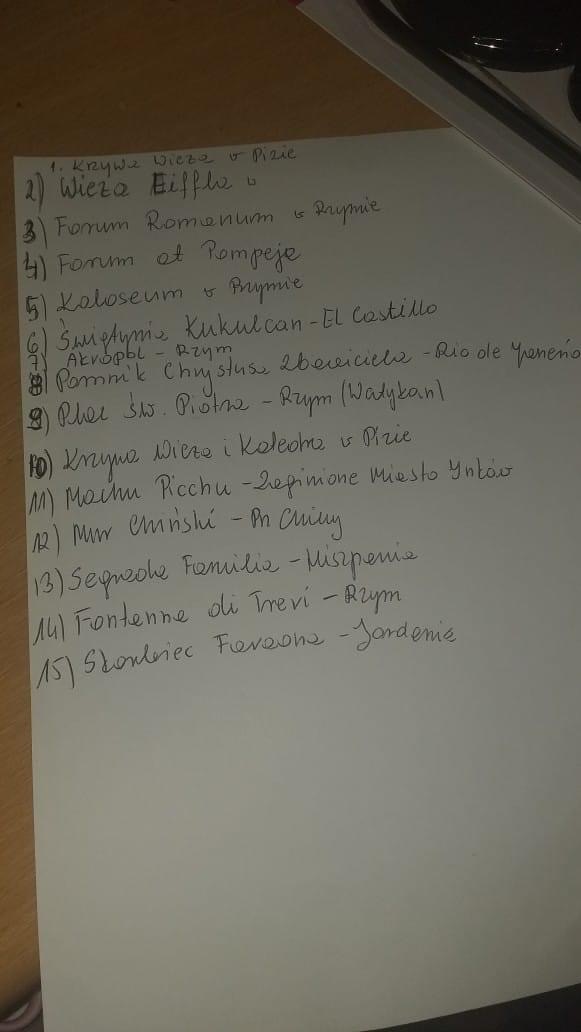 1. Krzywa Wieża w Pizie
2) Wieża Eiffla w
3) Forum Romanum w Rzymie
4) Forum at Pompeje
5) Koloseum w Rzymie
6) Świątynia Kukulcan - El Castillo
7) Akropol - Rzym
8) Pomnik Chrystusa Zbawiciela - Rio de Janeiro
9) Plac św. Piotra - Rzym (Watykan)
10) Krzywa Wieża i Katedra w Pizie
11) Machu Picchu - Zaginione Miasto Inków
12) Mur Chiński - Pn Chiny
13) Segrada Familia - Hiszpania
14) Fontanna di Trevi - Rzym
15) Skarbiec Faraona - Jordania